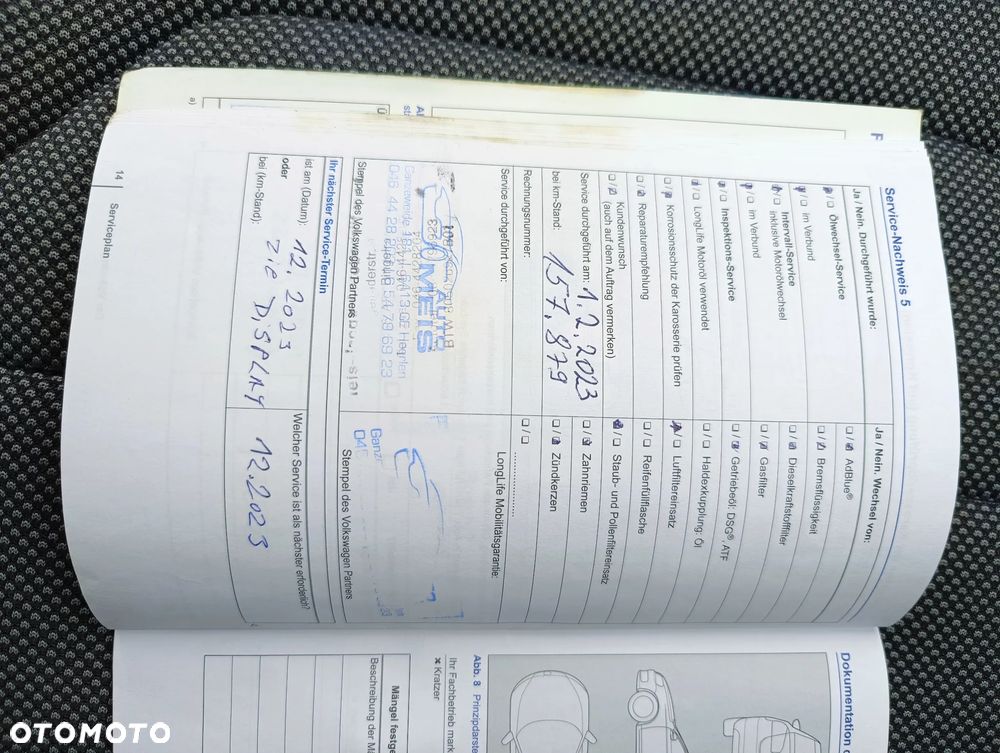 Service-Nachweis 5
Ja / Nein. Durchgeführt wurde:
Ölwechsel-Service
im Verbund
Intervall-Service
inklusive Motorölwechsel
im Verbund
Inspektions-Service
LongLife Motoröl verwendet
Korrosionsschutz der Karosserie prüfen
Reparaturempfehlung
Kundenwunsch
(auch auf dem Auftrag vermerken)
Service durchgeführt am: 1.2.2023
bei km-Stand: 157.879
Rechnungsnummer:
Service durchgeführt von:
AUTO
MEIS
Stempel des Volkswagen Partners
Ihr nächster Service-Termin
ist am (Datum): 12.2023
oder
bei (km-Stand): zie DISPLAY
Ja / Nein. Wechsel von:
AdBlue®
Bremsflüssigkeit
Dieselkraftstofffilter
Gasfilter
Getriebeöl: DSG®, ATF
Haldexkupplung: Öl
Luftfiltereinsatz
Reifenfüllflasche
Staub- und Pollenfiltereinsatz
Zahnriemen
Zündkerzen
LongLife Mobilitätsgarantie:
Stempel des Volkswagen Partners
Welcher Service ist als nächster erforderlich?
12.2023
14
Serviceplan
Dokumentation
Abb. 8 Prinzipdarste
Ihr Fachbetrieb mark
× Kratzer
Mängel festge
Beschreibung der Mä
OTOMOTO